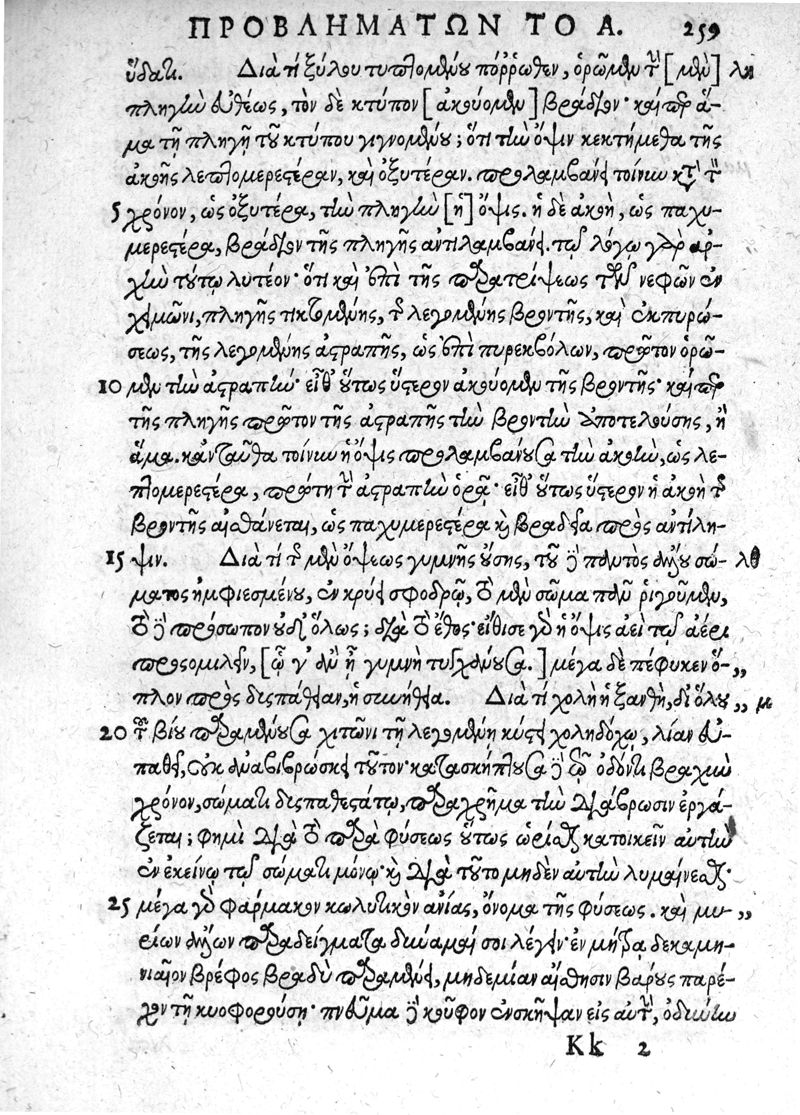 ΠΡΟΒΛΗΜΑΤΩΝ ΤΟ Α. 259
ὕδατι. Διὰ τί ξύλου τυπτομένου πόῤῥωθεν, ὁρῶμεν τὴν [μὲν] λη
πληγὴν εὐθέως, τὸν δὲ κτύπον [ἀκούομεν] βράδιον· καίπερ ἅ-
μα τῇ πληγῇ τοῦ κτύπου γιγνομένου; ὅτι τὴν ὄψιν κεκτήμεθα τῆς
ἀκοῆς λεπτομερεστέραν, καὶ ὀξυτέραν. προλαμβάνει τοίνυν κατὰ τὸν
5 χρόνον, ὡς ὀξυτέρα, τὴν πληγὴν [ἡ] ὄψις. ἡ δὲ ἀκοὴ, ὡς παχυ-
μερεστέρα, βράδιον τῆς πληγῆς ἀντιλαμβάνει. τῷ λόγῳ γὰρ ἀρ-
χὴν τούτῳ λυτέον· ὅτι καὶ ἐπὶ τῆς παρατρίψεως τῶν νεφῶν ἐν
χειμῶνι, πληγῆς τικτομένης, τῆς λεγομένης βροντῆς, καὶ ἐκπυρώ-
σεως, τῆς λεγομένης ἀστραπῆς, ὡς ἐπὶ πυρεκβόλων, πρῶτον ὁρῶ-
10 μεν τὴν ἀστραπήν· εἶθ' οὕτως ὕστερον ἀκούομεν τῆς βροντῆς· καίπερ
τῆς πληγῆς πρῶτον τῆς ἀστραπῆς τὴν βροντὴν ἀποτελούσης, ἢ
ἅμα. κἀνταῦθα τοίνυν ἡ ὄψις προλαμβάνουσα τὴν ἀκοὴν, ὡς λε-
πτομερεστέρα, πρώτη τὴν ἀστραπὴν ὁρᾷ· εἶθ' οὕτως ὕστερον ἡ ἀκοὴ τῆς
βροντῆς αἰσθάνεται, ὡς παχυμερεστέρα καὶ βραδεῖα πρὸς ἀντίλη-
15 ψιν. Διὰ τί τῆς μὲν ὄψεως γυμνῆς οὔσης, τοῦ δὲ παντὸς ἄλλου σώ- λθ
ματος ἠμφιεσμένου, ἐν κρύει σφοδρῷ, τὸ μὲν σῶμα πᾶν ῥιγοῦμεν,
τὸ δὲ πρόσωπον οὐδ' ὅλως; διὰ τὸ ἔθος· εἴθισε γὰρ ἡ ὄψις ἀεὶ τῷ ἀέρι
προσομιλεῖν, [ᾧ γ' ἂν ᾖ γυμνὴ τυγχάνουσα.] μέγα δὲ πέφυκεν ὅ- „
πλον πρὸς δυσπάθειαν, ἡ συνήθεια. Διὰ τί χολὴ ἡ ξανθὴ, δι' ὅλου „ μ
20 τοῦ βίου παραμένουσα χιτῶνι τῇ λεγομένῃ κύστει χοληδόχῳ, λίαν εὐ-
παθεῖ, οὐκ ἀναβιβρώσκει τοῦτον· κατασκήπτουσα δὲ τῷ ὀδόντι βραχὺν
χρόνον, σώματι δυσπαθεστάτῳ, παραχρῆμα τὴν διάβρωσιν ἐργά-
ζεται; φημὶ διὰ τὸ παρὰ φύσεως οὕτως ὡρίσθαι κατοικεῖν αὐτὴν
ἐν ἐκείνῳ τῷ σώματι μόνῳ· καὶ διὰ τοῦτο μηδὲν αὐτὴν λυμαίνεσθαι·
25 μέγα γὰρ φάρμακον κωλυτικὸν ἀνίας, ὄνομα τῆς φύσεως. καὶ μυ- „
ρίων ἄλλων παραδείγματα δύναμαί σοι λέγειν· ἐν μήτρᾳ δεκαμη-
νιαῖον βρέφος βραδὺ παραμένει, μηδεμίαν αἴσθησιν βάρους παρέ-
χον τῇ κυοφορούσῃ· πνεῦμα δὲ κοῦφον ἐνσκῆψαν εἰς αὐτὴν, ὀδύνην
Kk 2